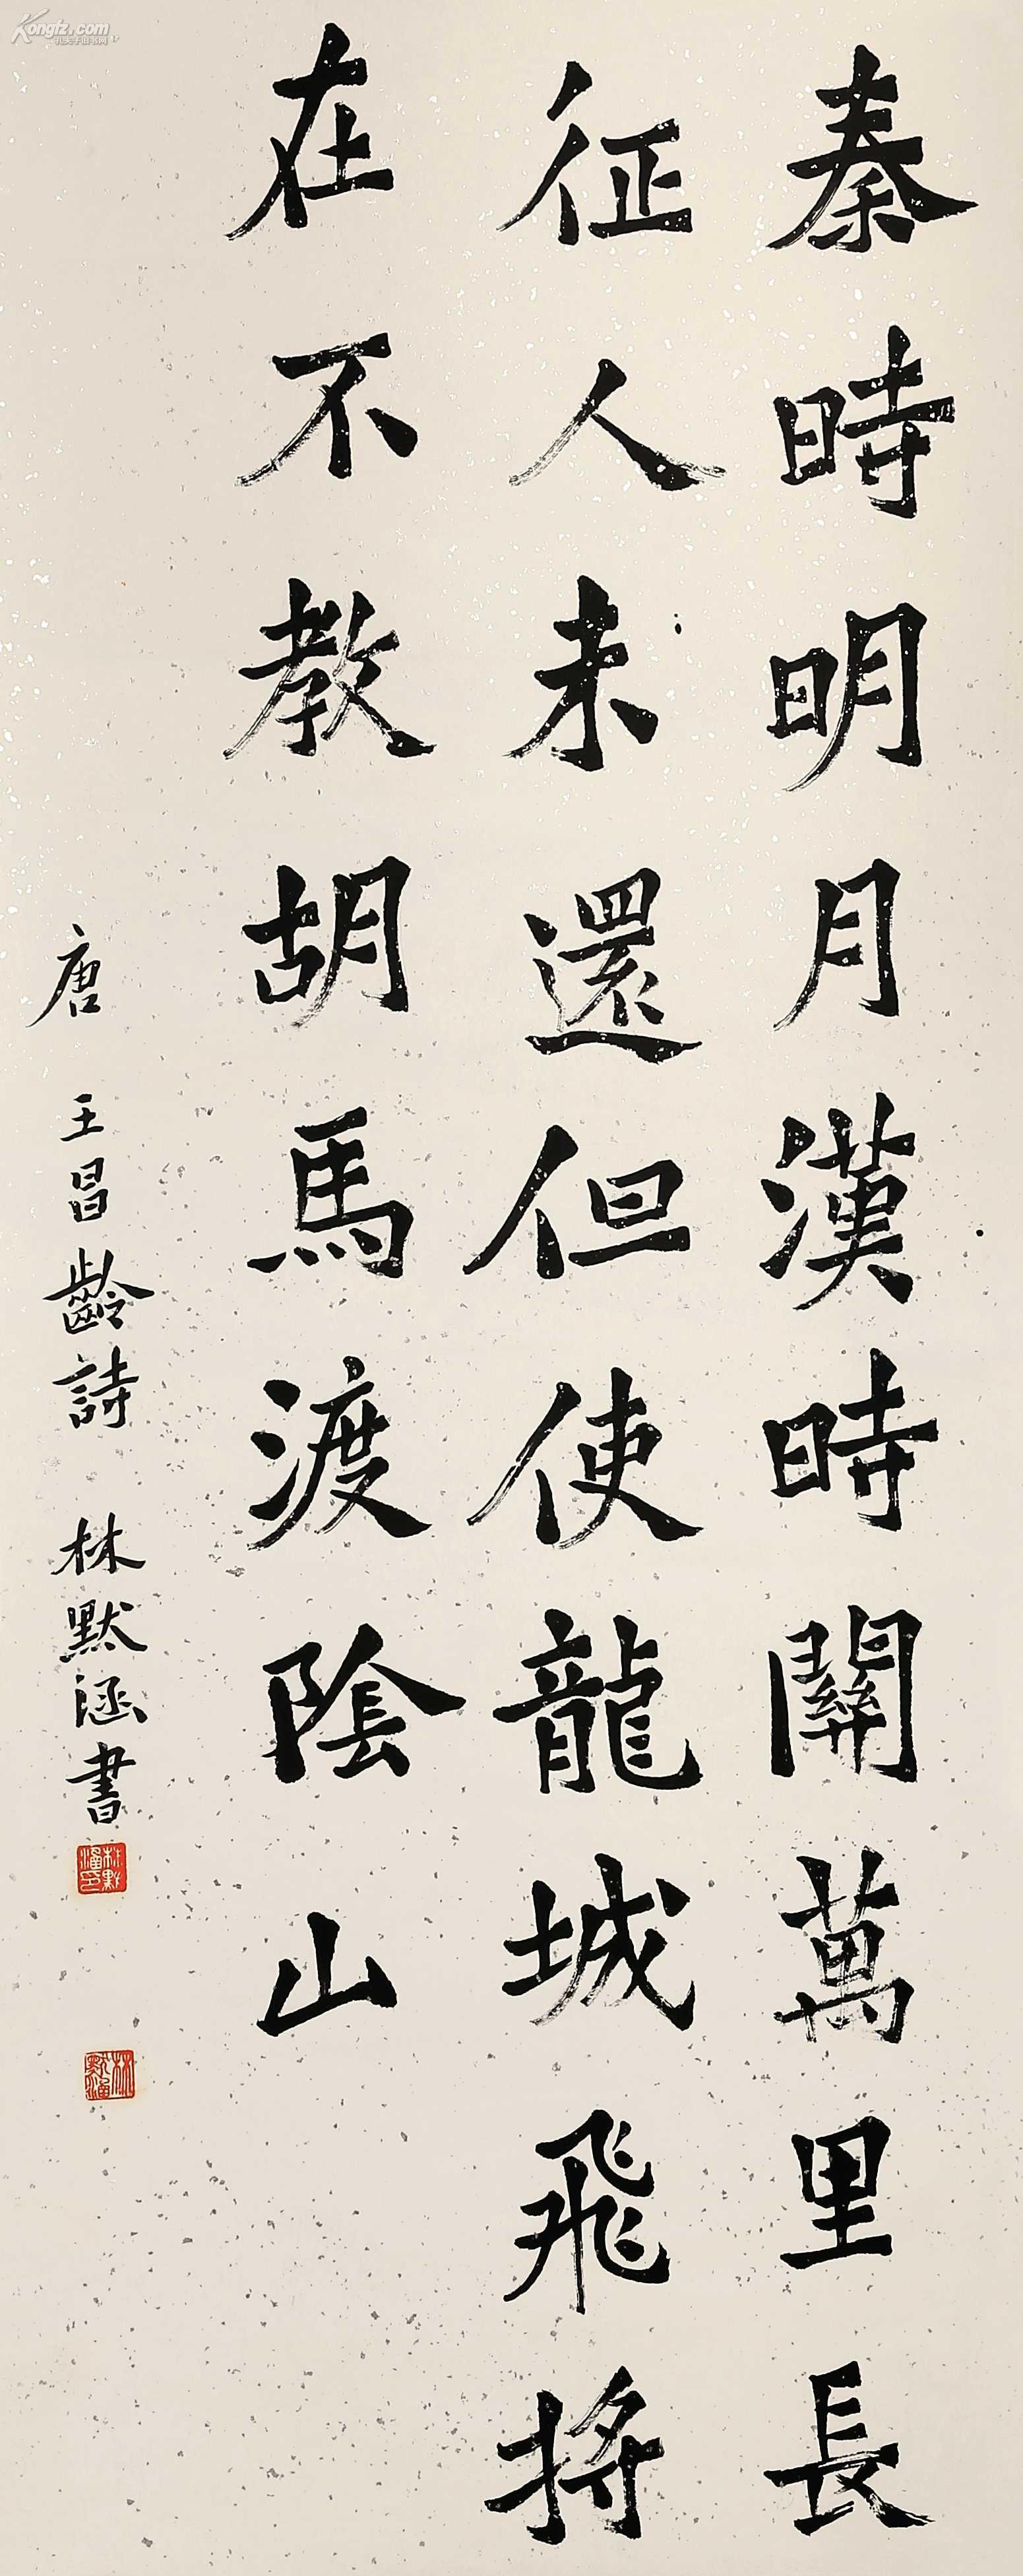 秦時明月漢時關萬里長
征人未還但使龍城飛將
在不教胡馬渡陰山
唐 王昌齡詩 林默涵書
林默涵印
林默涵
Kongfz.com
孔夫子旧书网